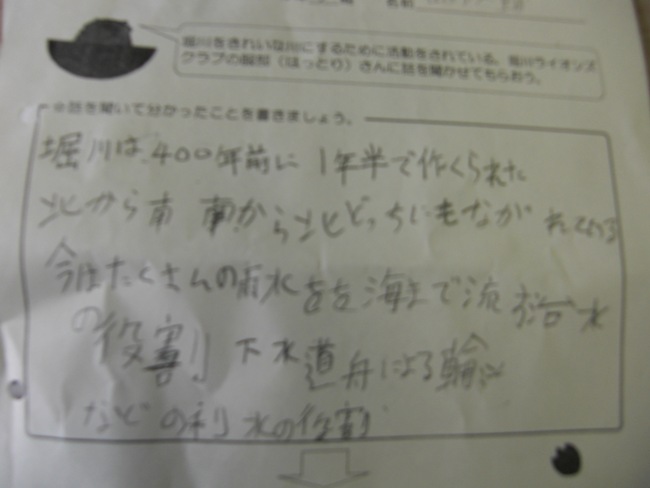 名前
堀川をきれいな川にするために活動をされている、堀川ライオンズ
クラブの服部（はっとり）さんに話を聞かせてもらおう。
※話を聞いて分かったことを書きましょう。
堀川は400年前に1年半で作くられた
北から南 南から北どっちにもながれている
今はたくさんの雨水を 海まで流す治水
の役割 下水道舟による輸
などの利水の役割